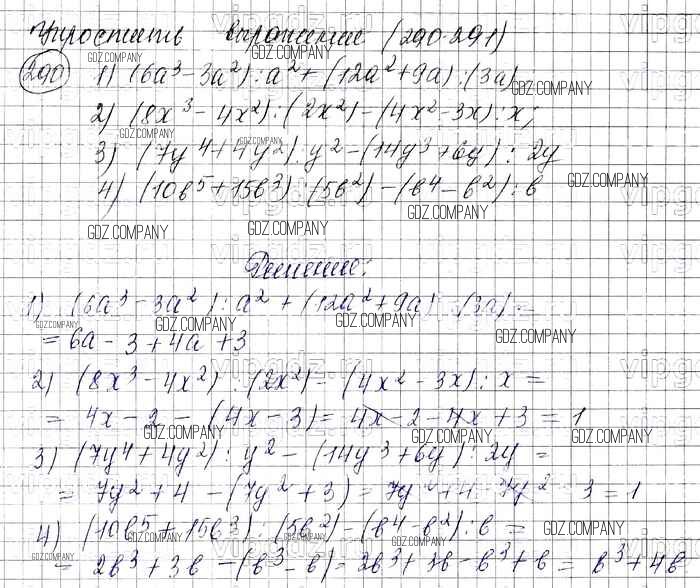 Упростить выражение (290-291)
290 1) (6a³-3a²):a²+(12a²+9a):(3a)
2) (8x³-4x²):(2x²)-(4x²-3x):x;
3) (7y⁴+4y²):y²-(14y³+6y):2y
4) (10b⁵+15b³):(5b²)-(b⁴-b²):b
Решение:
1) (6a³-3a²):a²+(12a²+9a):(3a)=
=6a-3+4a+3
2) (8x³-4x²):(2x²)-(4x²-3x):x=
=4x-2-(4x-3)=4x-2-4x+3=1
3) (7y⁴+4y²):y²-(14y³+6y):2y=
=7y²+4-(7y²+3)=7y²+4-7y²-3=1
4) (10b⁵+15b³):(5b²)-(b⁴-b²):b=
=2b³+3b-(b³-b)=2b³+3b-b³+b=b³+4b